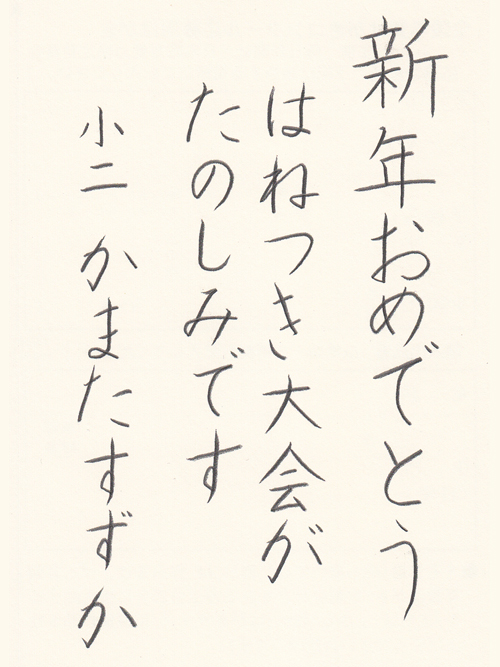 新年おめでとう
はねつき大会が
たのしみです
小二 かまたすずか